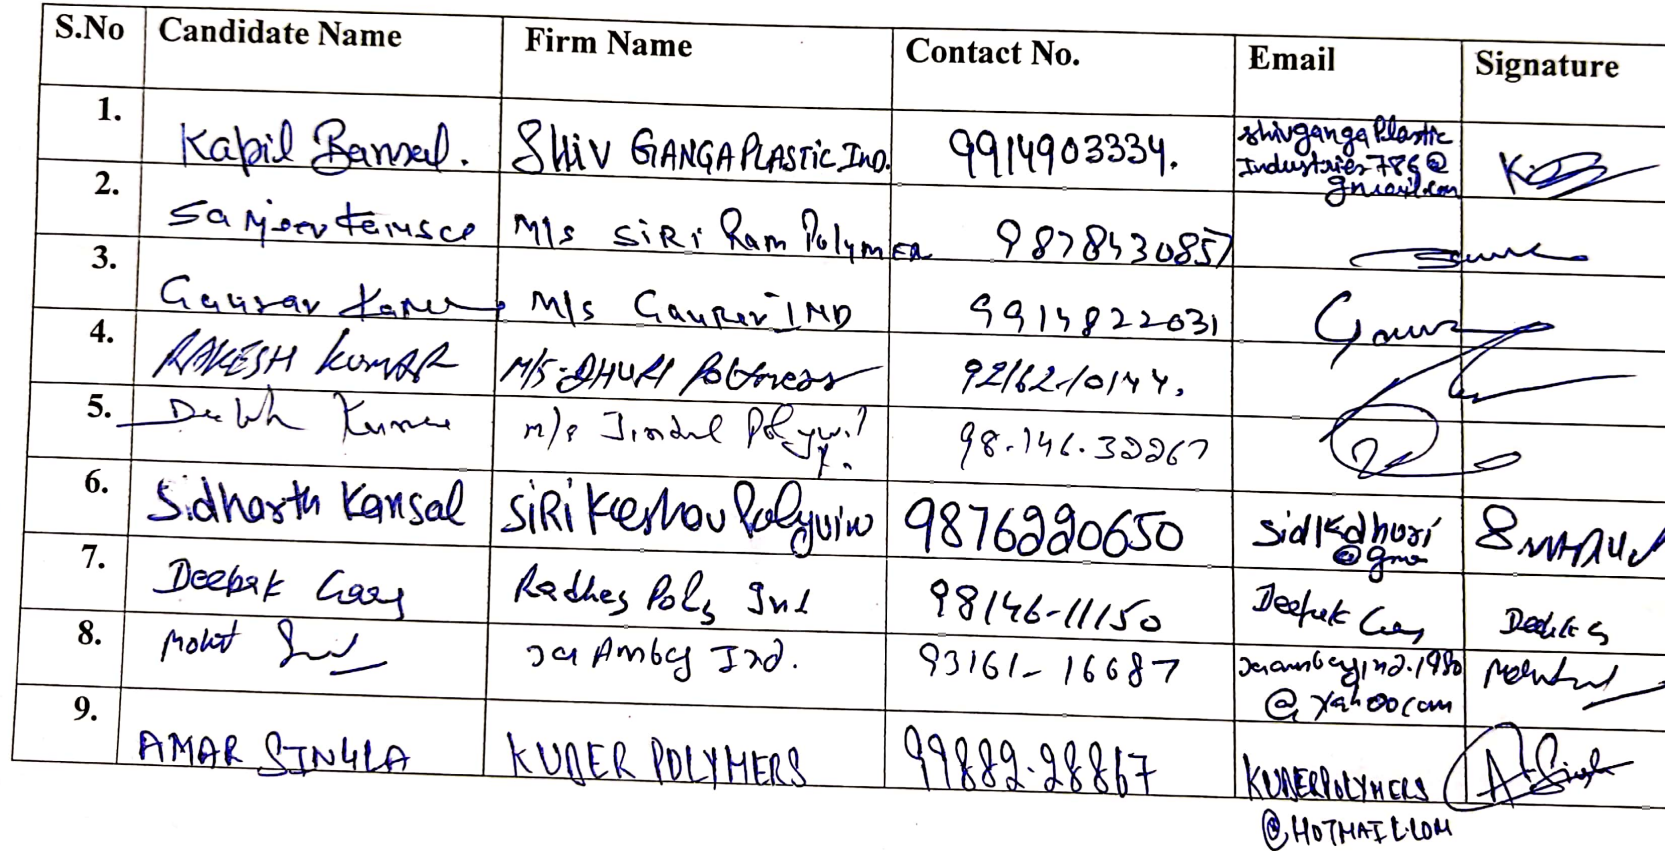 S.No Candidate Name Firm Name Contact No. Email Signature
1. Kapil Bansal. SHiV GANGA PLASTiC InD. 9914903334. shivganga Plastic
Industries786@
gmail.com
2. Sanjeev M/s SiRi Ram PolymER 9878430857
3. Gaurav M/s Gaurav IND 9914822031
4. RAKESH KUMAR M/S-DHURI 92162-10144.
5. Kumar M/s Jindal 98.146.32267
6. Sidharth Kansal SiRi Keshav 9876220650 sidkdhuri
@gma
7. Deepak Garg Radhey Poly Ind 98146-11150 Deepak Garg
8. Mohit Jai Ambey Ind. 93161-16687 Jaiambeyind.1980
@ Yahoo com
9. AMAR SINGLA KUBER POLYMERS 99882-28867 KUBERPOLYMERS
@HOTMAIL.COM